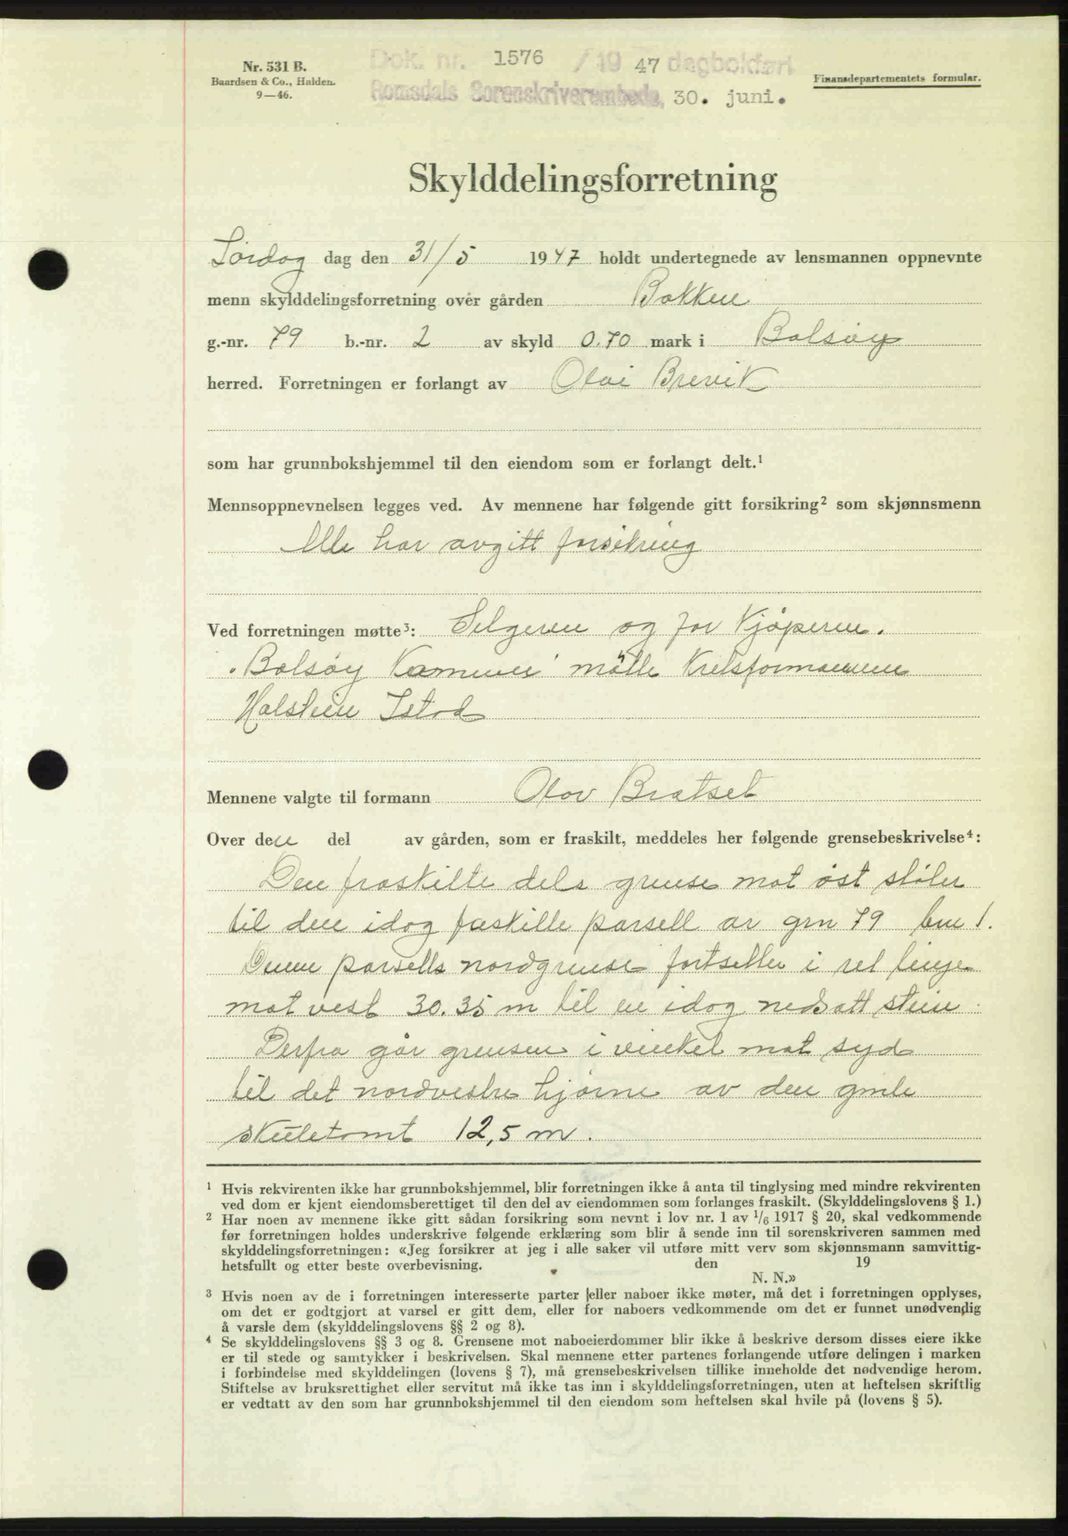 Nr. 531 B.
Baardsen & Co., Halden.
9—46.
Dok. nr. 1576 / 19 47 dagbokført
Romsdals Sorenskriverembede, 30. juni.
Finansdepartementets formular.
Skylddelingsforretning
Lördag dag den 31/5 1947 holdt undertegnede av lensmannen oppnevnte
menn skylddelingsforretning over gården Bakken
g.-nr. 79 b.-nr. 2 av skyld 0.70 mark i Bolsöy
herred. Forretningen er forlangt av Olai Brevik
som har grunnbokshjemmel til den eiendom som er forlangt delt.¹
Mennsoppnevnelsen legges ved. Av mennene har følgende gitt forsikring² som skjønnsmenn
Alle har avgitt forsikring
Ved forretningen møtte³: Selgeren og for Kjöperen.
Bolsöy Kommune mötte Kretsformannen
Halstein Istad
Mennene valgte til formann Olav Bratset
Over den del av gården, som er fraskilt, meddeles her følgende grensebeskrivelse⁴:
Den fraskilte dels grense mot öst stöter
til den idag fraskilte parsell av grn 79 bn 1.
Denne parsells nordgrense fortsetter i ret linje
mot vest 30.35 m til en idag nedsatt stein
Derfra går grensen i vinkel mot syd
til det nordvestre hjörne av den gmle
skuletomt 12,5 m.
¹ Hvis rekvirenten ikke har grunnbokshjemmel, blir forretningen ikke å anta til tinglysing med mindre rekvirenten
ved dom er kjent eiendomsberettiget til den del av eiendommen som forlanges fraskilt. (Skylddelingslovens § 1.)
² Har noen av mennene ikke gitt sådan forsikring som nevnt i lov nr. 1 av 1/6 1917 § 20, skal vedkommende
før forretningen holdes underskrive følgende erklæring som blir å sende inn til sorenskriveren sammen med
skylddelingsforretningen: «Jeg forsikrer at jeg i alle saker vil utføre mitt verv som skjønnsmann samvittig-
hetsfullt og etter beste overbevisning. den 19
N. N.»
³ Hvis noen av de i forretningen interesserte parter eller naboer ikke møter, må det i forretningen opplyses,
om det er godtgjort at varsel er gitt dem, eller for naboers vedkommende om det er funnet unødvendig
å varsle dem (skylddelingslovens §§ 2 og 8).
⁴ Se skylddelingslovens §§ 3 og 8. Grensene mot naboeierdommer blir ikke å beskrive dersom disses eiere ikke
er til stede og samtykker i beskrivelsen. Skal mennene etter partenes forlangende utføre delingen i marken
i forbindelse med skylddelingen (lovens § 7), må grensebeskrivelsen tillike inneholde det nødvendige herom.
Stiftelse av bruksrettighet eller servitut må ikke tas inn i skylddelingsforretningen, uten at heftelsen skriftlig
er vedtatt av den som har grunnbokshjemmel til den eiendom som heftelsen skal hvile på (lovens § 5).